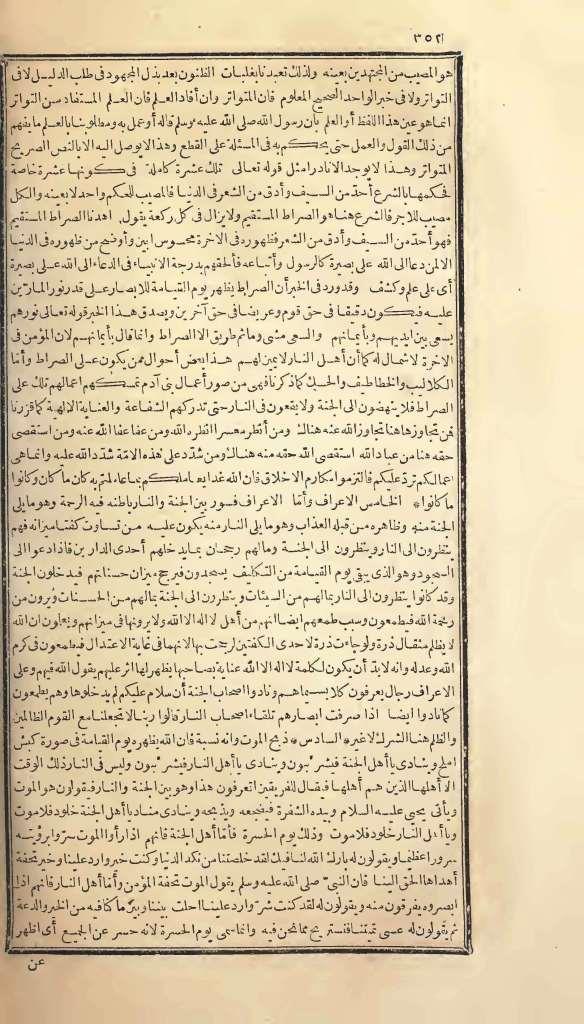 ٣٥٢
هو المصيب من المجتهدين بعينه ولذلك تعبدنا بغلبات الظنون بعد بذل المجهود في طلب الدليل لا في
التواتر ولا في خبر الواحد الصحيح المعلوم فان المتواتر وان أفاد العلم فان العلم المستفاد من التواتر
انما هو عين هذا اللفظ أو العلم بأن رسول الله صلى الله عليه وسلم قاله أو عمل به ومطلوبنا بالعلم ما يفهم
من ذلك القول والعمل حتى يحكم به في المسئلة على القطع وهذا لا يوصل اليه الا بالنص الصريح
المتواتر وهذا لا يوجد الا نادرا مثل قوله تعالى تلك عشرة كاملة في كونها عشرة خاصة
فحكمها بالشرع أحد من السيف وأدق من الشعر في الدنيا فالمصيب للحكم واحد لا بعينه والكل
مصيب للاجر فالشرع هنا هو الصراط المستقيم ولا يزال في كل ركعة يقول اهدنا الصراط المستقيم
فهو أحد من السيف وأدق من الشعر فظهوره في الآخرة محسوس أبين وأوضح من ظهوره في الدنيا
الا لمن دعا الى الله على بصيرة كالرسول وأتباعه فألحقهم بدرجة الانبياء في الدعاء الى الله على بصيرة
أى على علم وكشف وقد ورد في الخبر أن الصراط يظهر يوم القيامة للابصار على قدر نور المارين
عليه فيكون دقيقا في حق قوم وعريضا في حق آخرين ويصدق هذا الخبر قوله تعالى نورهم
يسعى بين أيديهم وبأيمانهم والسعى مشى وما ثم طريق الا الصراط وانما قال بأيمانهم لان المؤمن في
الآخرة لا شمال له كما أن أهل النار لا يمين لهم هذا بعض أحوال ممن يكون على الصراط وأما
الكلاليب والخطاطيف والحسك كما ذكرنا فهى من صور أعمال بنى آدم تمسكهم اعمالهم تلك على
الصراط فلا ينهضون الى الجنة ولا يقعون في النار حتى تدركهم الشفاعة والعناية الالهية كما قررنا
فمن تجاوز هاهنا تجاوز الله عنه هناك ومن أنظر معسرا انظره الله ومن عفا عفا الله عنه ومن استقصى
حقه هنا من عباد الله استقصى الله حقه منه هناك ومن شدد على هذه الامة شدد الله عليه وانما هى
اعمالكم ترد عليكم فالتزموا مكارم الاخلاق فان الله غدا يعاملكم بما عاملتم به كان ما كان وكانوا
ما كانوا * الخامس الاعراف وأما الاعراف فسور بين الجنة والنار باطنه فيه الرحمة وهو ما يلى
الجنة منه وظاهره من قبله العذاب وهو ما يلى النار منه يكون عليه من تساوت كفتا ميزانه فهم
ينظرون الى النار وينظرون الى الجنة وما لهم رجحان بما يدخلهم أحدى الدارين فاذا دعوا الى
السجود وهو الذى يبقى يوم القيامة من التكليف يسجدون فيرجح ميزان حسناتهم فيدخلون الجنة
وقد كانوا ينظرون الى النار بما لهم من السيئات وينظرون الى الجنة بما لهم من الحسنات ويرون من
رحمة الله فيطمعون وسبب طمعهم ايضا انهم من أهل لا اله الا الله ولا يرونها في ميزانهم ويعلمون ان الله
لا يظلم مثقال ذرة ولو جاءت ذرة لاحدى الكفتين لرجحت بها لانهما في غاية الاعتدال فيطمعون في كرم
الله وعدله وانه لا بد أن يكون لكلمة لا اله الا الله عناية بصاحبها يظهر لها اثر عليهم يقول الله فيهم وعلى
الاعراف رجال يعرفون كلا بسيماهم ونادوا اصحاب الجنة أن سلام عليكم لم يدخلوها وهم يطمعون
كما نادوا ايضا اذا صرفت ابصارهم تلقاء اصحاب النار قالوا ربنا لا تجعلنا مع القوم الظالمين
والظلم هنا الشرك لا غير * السادس * ذبح الموت وانه نسبة فان الله يظهره يوم القيامة في صورة كبش
املح وينادى يا أهل الجنة فيشرئبون وينادى يا أهل النار فيشرئبون وليس في النار ذلك الوقت
الا أهلها الذين هم أهلها فيقال للفريقين اتعرفون هذا وهو بين الجنة والنار فيقولون هو الموت
ويأتى يحيى عليه السلام وبيده الشفرة فيضجعه ويذبحه وينادى مناد يا أهل الجنة خلود فلا موت
ويا أهل النار خلود فلا موت وذلك يوم الحسرة فأما أهل الجنة فانهم اذا رأوا الموت سروا برؤيته
سرورا عظيما ويقولون له بارك الله لنا فيك لقد خلصتنا من نكد الدنيا وكنت خير وارد علينا وخير تحفة
أهداها الحق الينا فان النبى صلى الله عليه وسلم يقول الموت تحفة المؤمن وأما أهل النار فانهم اذا
ابصروه يفرقون منه ويقولون له لقد كنت شر وارد علينا احلت بيننا وبين ما كنا فيه من الخير والدعة
ثم يقولون له عسى تميتنا فنستريح مما نحن فيه وانما سمى يوم الحسرة لانه حسر عن الجميع أى اظهر
عن